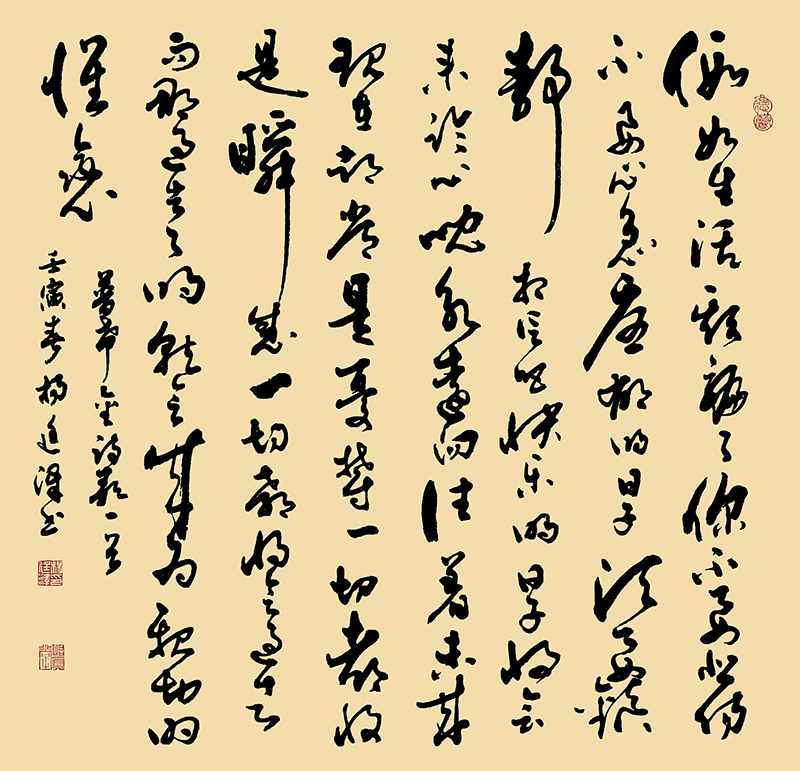 假如生活欺骗了你不要悲伤
不要心急忧郁的日子须要镇
静相信吧快乐的日子将会
来临心永远向往着未来
现在却常是忧一切都将
是瞬息一切都将会过去
而那过去了的就会成为亲切的
怀恋
普希金诗歌一首
壬寅春杨廷泽书